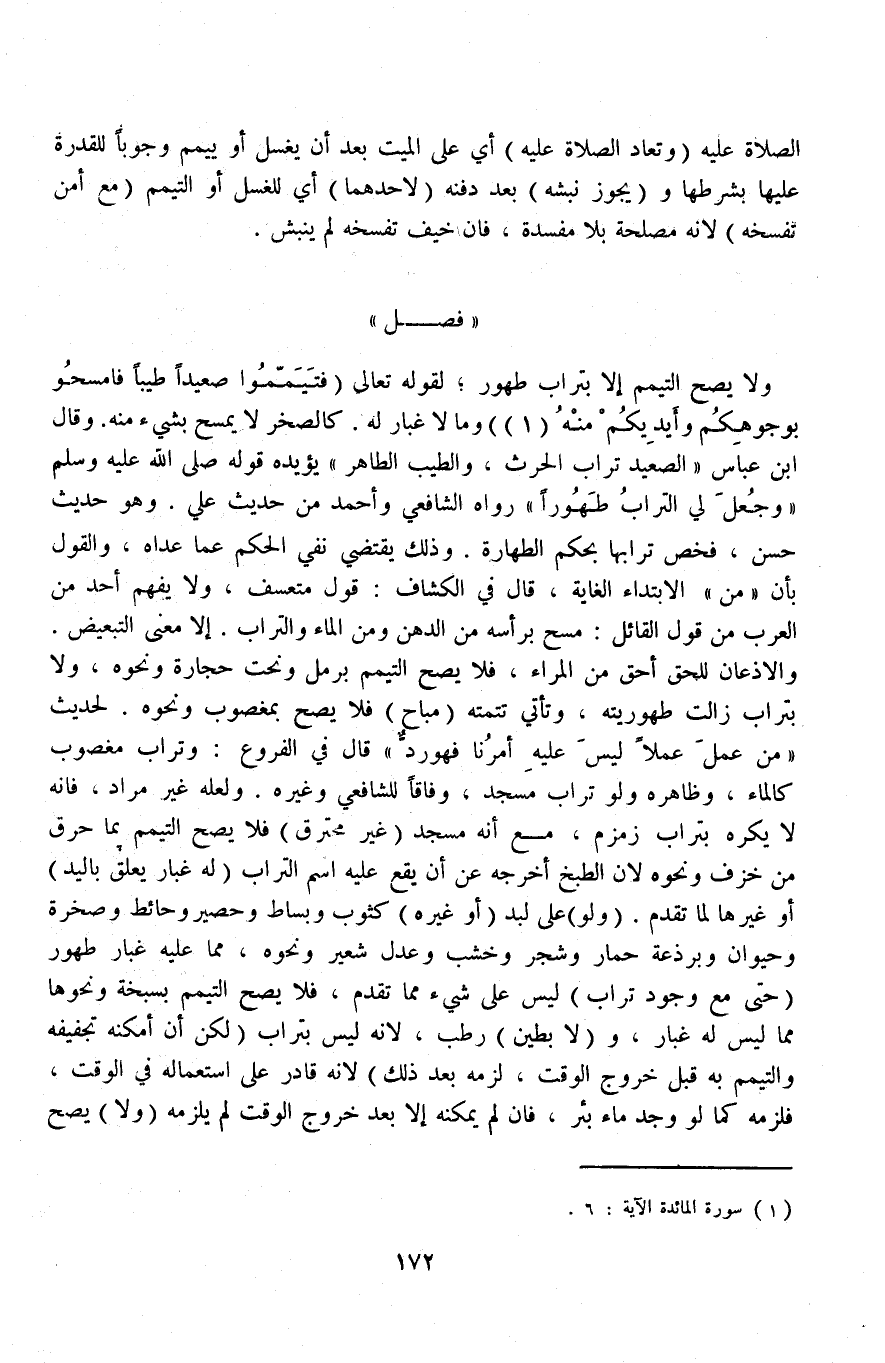 الصلاة عليه (وتعاد الصلاة عليه) أي على الميت بعد أن يغسل أو ييمم وجوباً للقدرة
عليها بشرطها و (يجوز نبشه) بعد دفنه (لاحدهما) أي للغسل أو التيمم (مع أمن
تفسخه) لانه مصلحة بلا مفسدة ، فان خيف تفسخه لم ينبش .
« فصـــل »
ولا يصح التيمم إلا بتراب طهور ؛ لقوله تعالى (فتَيَمَّمُوا صعيداً طيباً فامسحُو
بوجوهِكُم وأيديكُمْ منْهُ (١)) وما لا غبار له . كالصخر لا يمسح بشيء منه. وقال
ابن عباس « الصعيد تراب الحرث ، والطيب الطاهر » يؤيده قوله صلى الله عليه وسلم
« وجُعلَ لي الترابُ طَهُوراً » رواه الشافعي وأحمد من حديث علي . وهو حديث
حسن ، فخص ترابها بحكم الطهارة . وذلك يقتضي نفي الحكم عما عداه ، والقول
بأن « من » الابتداء الغاية ، قال في الكشاف : قول متعسف ، ولا يفهم أحد من
العرب من قول القائل : مسح برأسه من الدهن ومن الماء والتراب . إلا معنى التبعيض .
والاذعان للحق أحق من المراء ، فلا يصح التيمم برمل ونحت حجارة ونحوه ، ولا
بتراب زالت طهوريته ، وتأتي تتمته (مباح) فلا يصح بمغصوب ونحوه . لحديث
« من عملَ عملاً ليسَ عليهِ أمرُنا فهوردٌّ » قال في الفروع : وتراب مغصوب
كالماء ، وظاهره ولو تراب مسجد ، وفاقاً للشافعي وغيره . ولعله غير مراد ، فانه
لا يكره بتراب زمزم ، مـع أنه مسجد (غير محترق) فلا يصح التيمم بما حرق
من خزف ونحوه لان الطبخ أخرجه عن أن يقع عليه اسم التراب (له غبار يعلق باليد)
أو غيرها لما تقدم . (ولو)على لبد (أو غيره) كثوب وبساط وحصير وحائط وصخرة
وحيوان وبرذعة حمار وشجر وخشب وعدل شعير ونحوه ، مما عليه غبار طهور
(حتى مع وجود تراب) ليس على شيء مما تقدم ، فلا يصح التيمم بسبخة ونحوها
مما ليس له غبار ، و (لا بطين) رطب ، لانه ليس بتراب (لكن أن أمكنه تجفيفه
والتيمم به قبل خروج الوقت ، لزمه بعد ذلك) لانه قادر على استعماله في الوقت ،
فلزمه كما لو وجد ماء بئر ، فان لم يمكنه إلا بعد خروج الوقت لم يلزمه (ولا) يصح
(١) سورة المائدة الآية : ٦ .
١٧٢